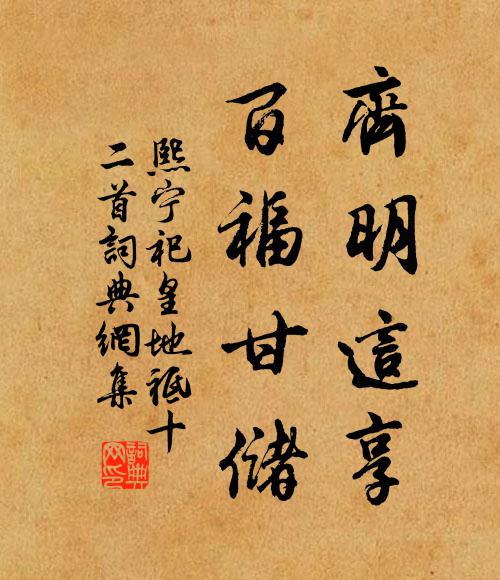 齊明這享
百福甘儲
熙宁祀皇地祗十
二首詞典網集
詞典
网印